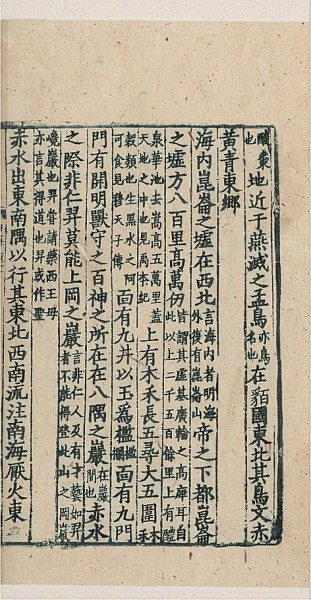 地近于燕滅之孟鳥亦鳥名也在貊國東北其鳥文赤
黃青東鄉
海内崑崙之墟在西北言海内者明海外復有崑崙山帝之下都崑崙
之墟方八百里高萬仞皆謂其虛基廣輪之高庳耳自此以上二千五百餘里上有醴
泉華池去嵩高五萬里蓋天地之中也見禹本紀上有木禾長五尋大五圍木禾
穀類也生黑水之阿可食見穆天子傳面有九井以玉為檻檻欄面有九門
門有開明獸守之百神之所在在八隅之巖在巖間也赤水
之際非仁羿莫能上岡之巖言非仁人及有才藝如羿者不能得登此山之岡巖
嶢巖也羿嘗請藥西王母亦言其得道也羿或作聖
赤水出東南隅以行其東北西南流注南海厭火東